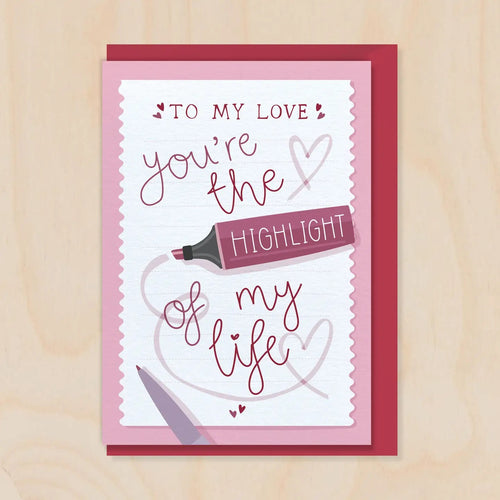 TO MY LOVE
you're
the
HIGHLIGHT
of my
life